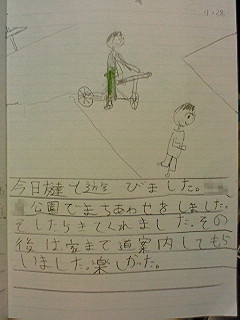 今日達と遊びました。
公園でまちあわせをしました。
そしたらきてくれました。その
後は家まで道案内してもら
いました。楽しかった。